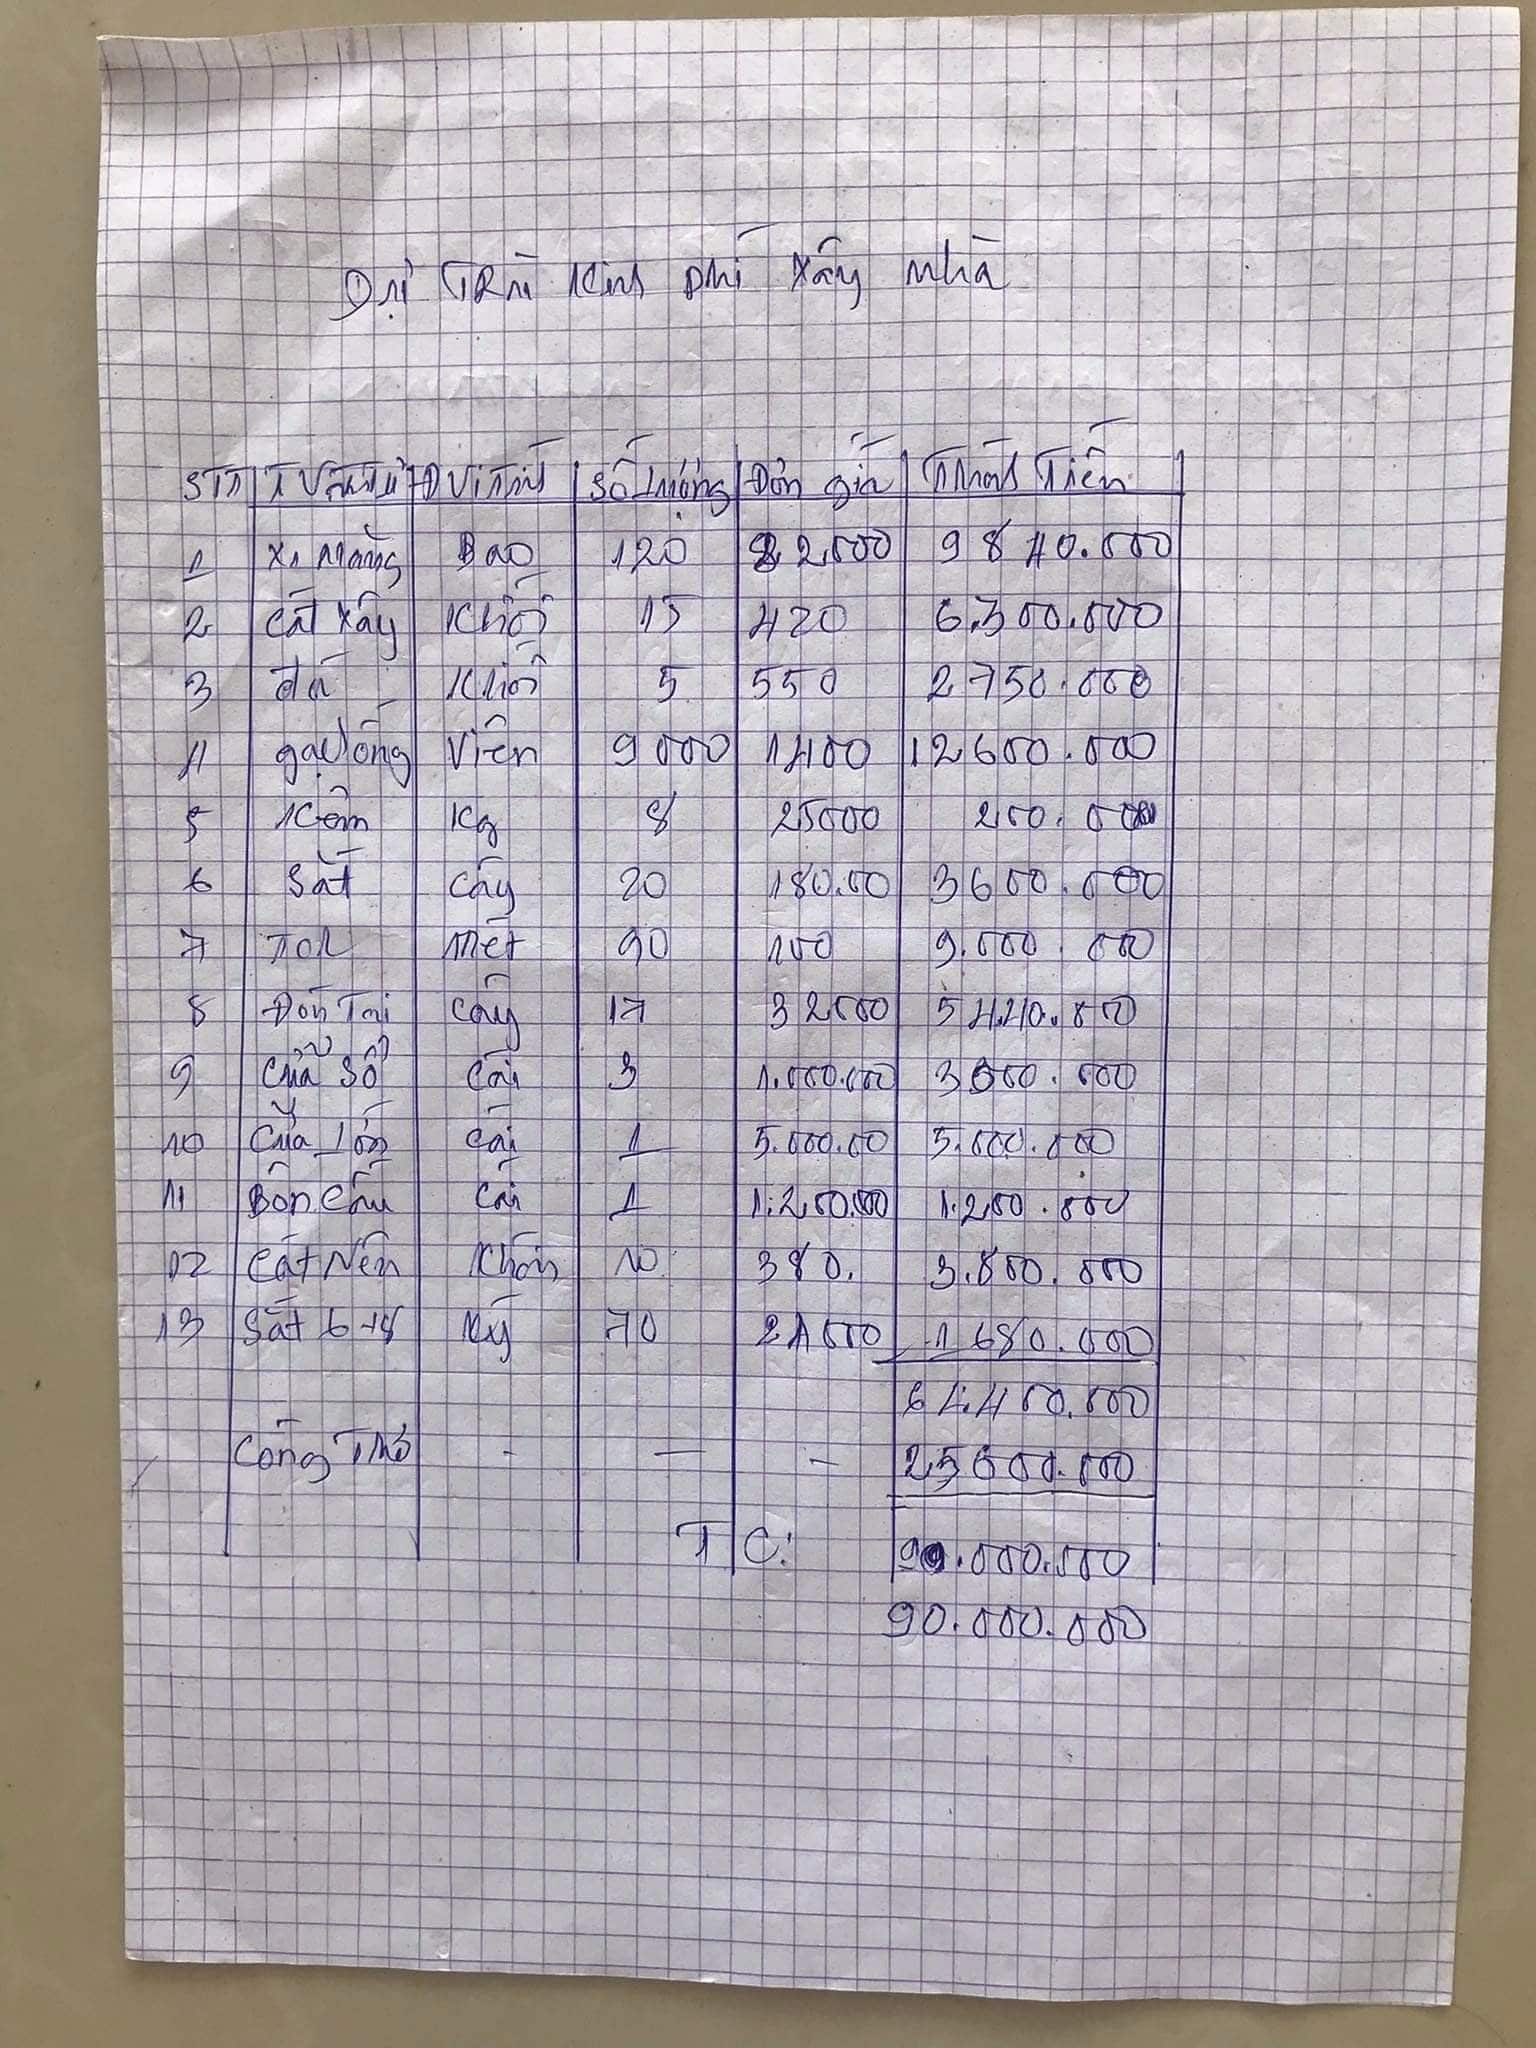 Dự Trù Kinh phí xây nhà
STT T Vật Tư Đ Vị Tính Số lượng Đơn giá Thành Tiền
1 Xi măng Bao 120 82.000 9840.000
2 Cát xây Khối 15 420 6.300.000
3 đá Khối 5 550 2750.000
4 gạch ống Viên 9000 1400 12600.000
5 Kẽm Kg 8 25000 200.000
6 Sắt Cây 20 180.00 3600.000
7 Tol mét 90 100 9.000.000
8 Đòn Tai Cây 17 32000 5440.000
9 Cửa Sổ Cái 3 1.000.000 3000.000
10 Cửa lớn Cái 1 5.000.00 5.000.000
11 Bồn Cầu Cái 1 1.200.000 1.200.000
12 Cát Nền Khối 10 380. 3.800.000
13 Sắt 6+8 Ký 70 24000 1680.000
64.400.000
Công Thợ - - - 25600.000
T C: 90.000.000
90.000.000